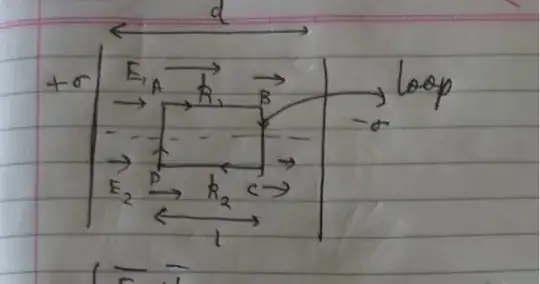 d
E₁
+σ A k₁ B loop
-σ
E₂ D k₂ C
l